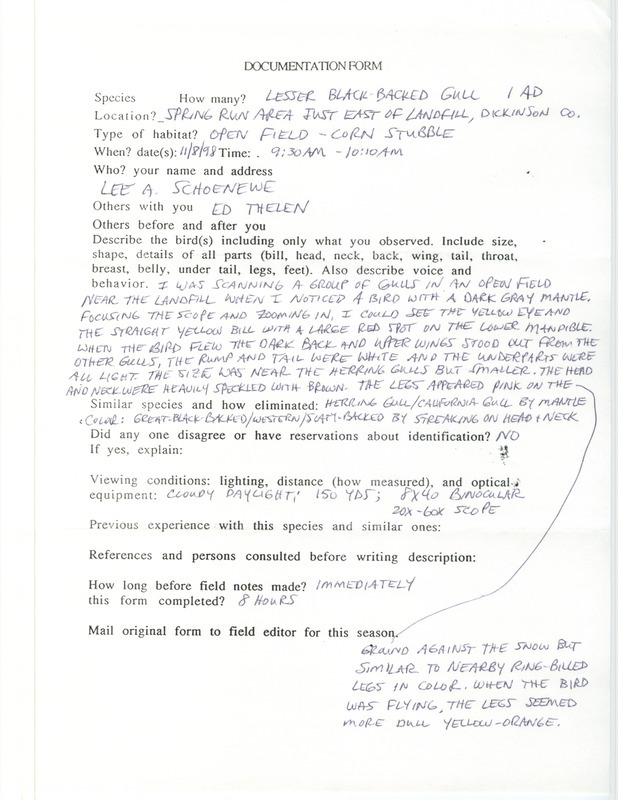 DOCUMENTATION FORM
Species How many? LESSER BLACK-BACKED GULL 1 AD
Location? SPRING RUN AREA JUST EAST OF LANDFILL, DICKINSON CO.
Type of habitat? OPEN FIELD - CORN STUBBLE
When? date(s): 11/8/98 Time: . 9:30 AM - 10:10 AM
Who? your name and address
LEE A. SCHOENEWE
Others with you ED THELEN
Others before and after you
Describe the bird(s) including only what you observed. Include size,
shape, details of all parts (bill, head, neck, back, wing, tail, throat,
breast, belly, under tail, legs, feet). Also describe voice and
behavior. I WAS SCANNING A GROUP OF GULLS IN AN OPEN FIELD
NEAR THE LANDFILL WHEN I NOTICED A BIRD WITH A DARK GRAY MANTLE.
FOCUSING THE SCOPE AND ZOOMING IN, I COULD SEE THE YELLOW EYE AND
THE STRAIGHT YELLOW BILL WITH A LARGE RED SPOT ON THE LOWER MANDIBLE.
WHEN THE BIRD FLEW THE DARK BACK AND UPPER WINGS STOOD OUT FROM THE
OTHER GULLS, THE RUMP AND TAIL WERE WHITE AND THE UNDERPARTS WERE
ALL LIGHT. THE SIZE WAS NEAR THE HERRING GULLS BUT SMALLER. THE HEAD
AND NECK WERE HEAVILY SPECKLED WITH BROWN. THE LEGS APPEARED PINK ON THE
Similar species and how eliminated: HERRING GULL/CALIFORNIA GULL BY MANTLE
COLOR: GREAT-BLACK-BACKED/WESTERN/SLATY-BACKED BY STREAKING ON HEAD + NECK
Did any one disagree or have reservations about identification? NO
If yes, explain:
Viewing conditions: lighting, distance (how measured), and optical
equipment: CLOUDY DAYLIGHT; 150 YDS; 8X40 BINOCULAR
20X-60X SCOPE
Previous experience with this species and similar ones:
References and persons consulted before writing description:
How long before field notes made? IMMEDIATELY
this form completed? 8 HOURS
Mail original form to field editor for this season.
GROUND AGAINST THE SNOW BUT
SIMILAR TO NEARBY RING-BILLED
LEGS IN COLOR. WHEN THE BIRD
WAS FLYING, THE LEGS SEEMED
MORE DULL YELLOW-ORANGE.